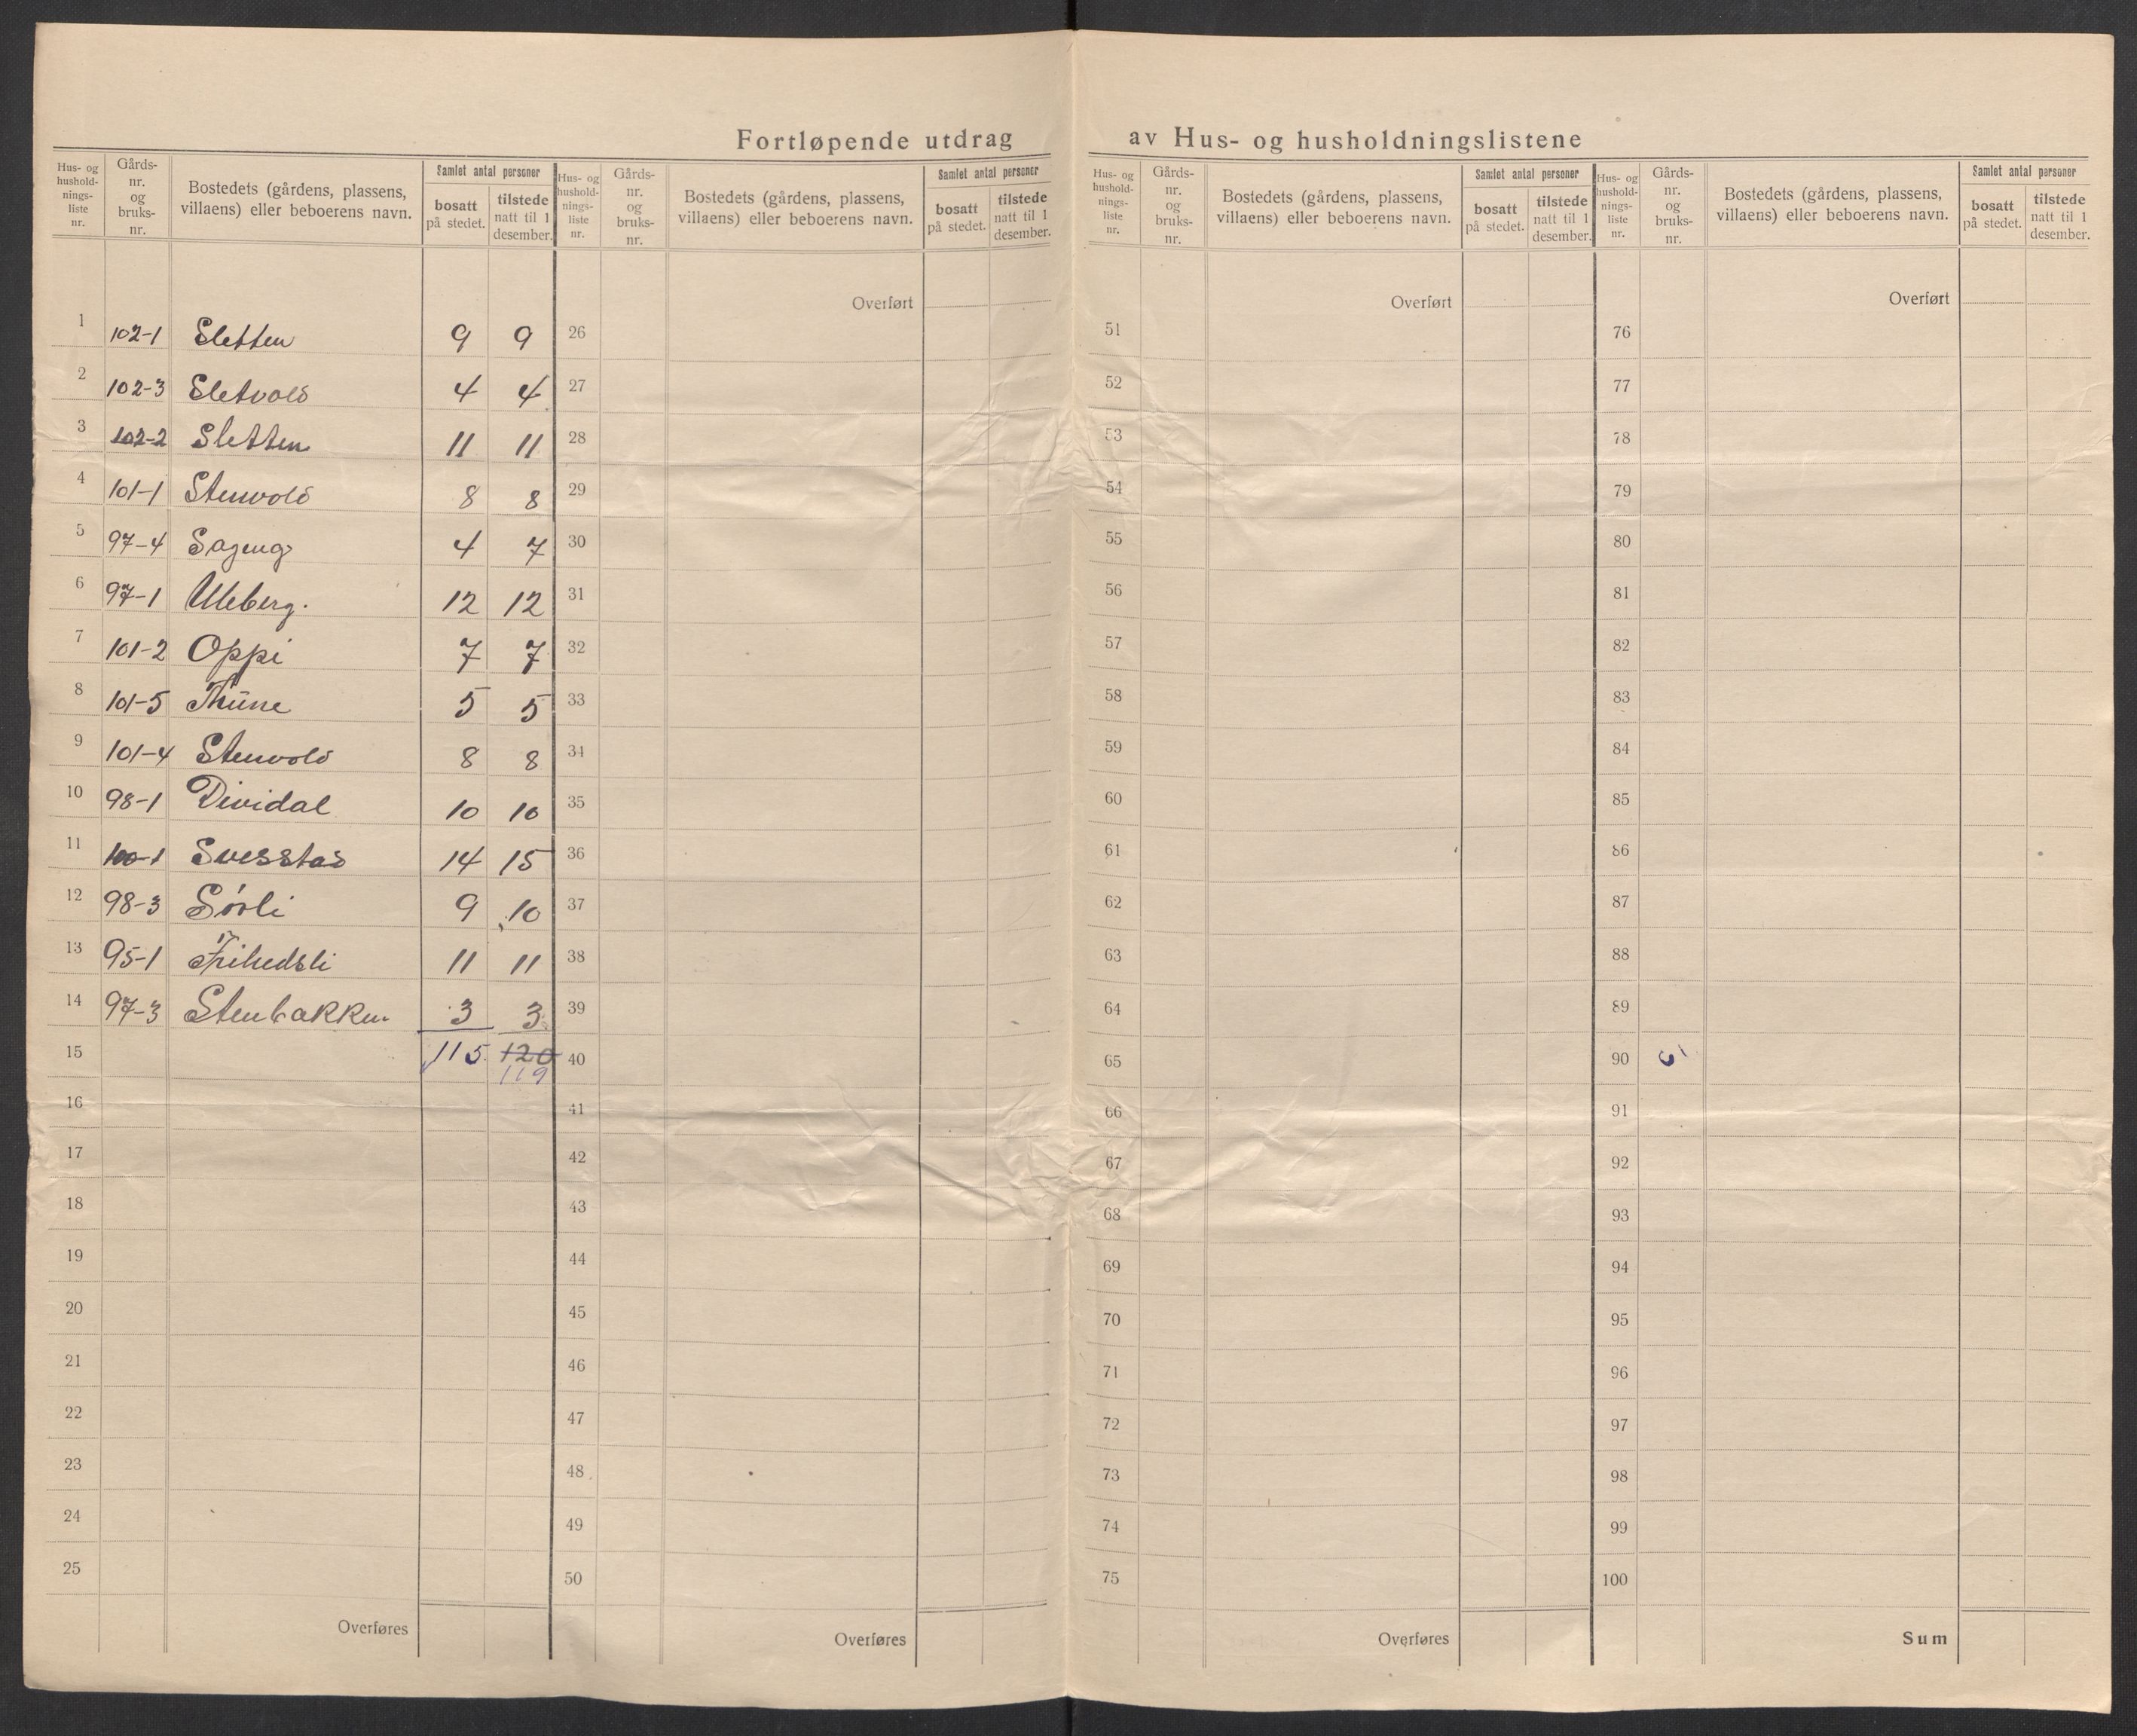 Fortløpende utdrag av Hus- og husholdningslistene
Hus- og hushold-nings-liste nr. | Gårds-nr. og bruks-nr. | Bostedets (gårdens, plassens, villaens) eller beboerens navn. | Samlet antal personer | bosatt på stedet. | tilstede natt til 1 desember.
Hus- og hushold-nings-liste nr. | Gårds-nr. og bruks-nr. | Bostedets (gårdens, plassens, villaens) eller beboerens navn. | Samlet antal personer | bosatt på stedet. | tilstede natt til 1 desember.
Hus- og hushold-nings-liste nr. | Gårds-nr. og bruks-nr. | Bostedets (gårdens, plassens, villaens) eller beboerens navn. | Samlet antal personer | bosatt på stedet. | tilstede natt til 1 desember.
Hus- og hushold-nings-liste nr. | Gårds-nr. og bruks-nr. | Bostedets (gårdens, plassens, villaens) eller beboerens navn. | Samlet antal personer | bosatt på stedet. | tilstede natt til 1 desember.
1 102-1 Sletten 9 9
2 102-3 Sletvold 4 4
3 102-2 Sletten 11 11
4 101-1 Stenvold 8 8
5 97-4 Sageng 4 7
6 97-1 Uleberg. 12 12
7 101-2 Oppi 7 7
8 101-5 Thune 5 5
9 101-4 Stenvold 8 8
10 98-1 Dividal 10 10
11 100-1 14 15
12 98-3 Sórli 9 10
13 95-1 Frihedsli 11 11
14 97-3 Stenbakken 3 3
15 115 120
119
16
17
18
19
20
21
22
23
24
25
Overføres
Overført
26
27
28
29
30
31
32
33
34
35
36
37
38
39
40
41
42
43
44
45
46
47
48
49
50
Overføres
Overført
51
52
53
54
55
56
57
58
59
60
61
62
63
64
65
66
67
68
69
70
71
72
73
74
75
Overføres
Overført
76
77
78
79
80
81
82
83
84
85
86
87
88
89
90
91
92
93
94
95
96
97
98
99
100
Sum